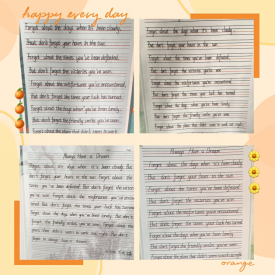 happy every day
Forget about the days when it's been cloudy,
But don't forget your hours in the sun.
Forget about the times you've been defeated,
But don't forget the victories you've won.
Forget about the misfortunes you've encountered,
But don't forget the times your luck has turned.
Forget about the days when you've been lonely,
But don't forget the friendly smiles you've seen.
Forget about the plans that didn't seem to work out right,
Forget about the days when it's been cloudy,
But don't forget your hours in the sun.
Forget about the times you've been defeated,
But don't forget the victories you've won.
Forget about the misfortunes you've encountered,
But don't forget the times your luck has turned.
Forget about the days when you've been lonely,
But don't forget the friendly smiles you've seen.
Forget about the plans that didn't seem to work out right,
Always Have a Dream
Forget about the days when it's been cloudy. But
don't forget your hours in the sun. Forget about the
times you've been defeated. But don't forget the victories
you've won. Forget about the misfortunes you've encountered,
But don't forget the times your luck has turned.
Forget about the days when you've been lonely. But don't
forget the friendly smiles you've seen. Forget about the
plans that didn't seem to work out right. But don't
forget to always have a dream.
Always Have a Dream
Forget about the days when it's been cloudy.
But don't forget your hours in the sun.
Forget about the times you've been defeated.
But don't forget the victories you've won.
Forget about the misfortunes you've encountered,
But don't forget the times your luck has turned.
Forget about the days when you've been lonely.
But don't forget the friendly smiles you've seen.
Forget about the plans that didn't seem to work out right,
orange